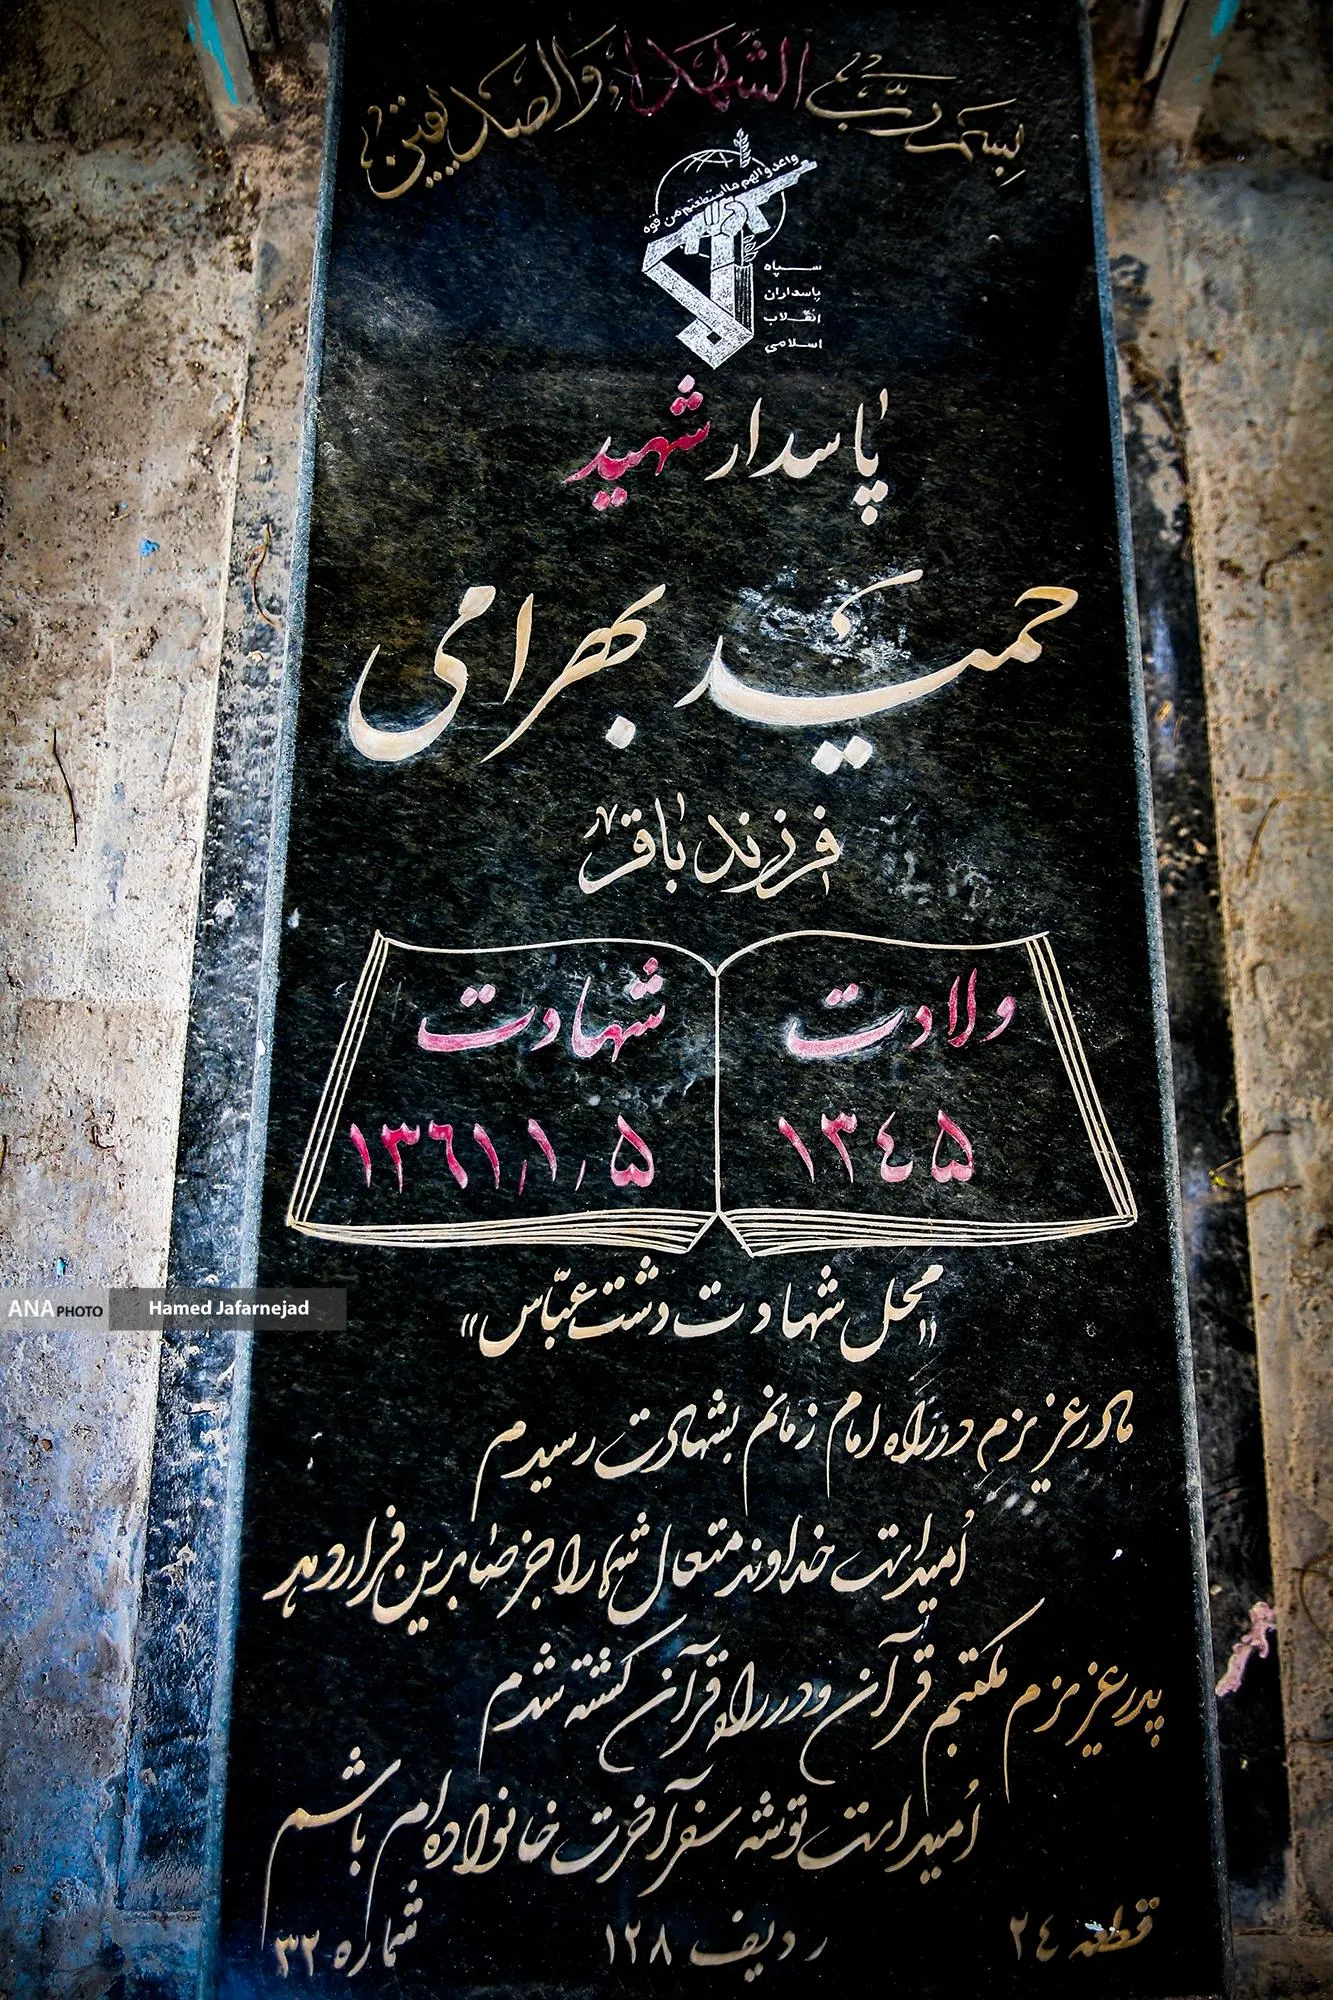 بسم رب الشهداء والصدیقین
واعدوالهم مااستطعتم من قوه
سپاه
پاسداران
انقلاب
اسلامی
پاسدار شهید
حمید بهرامی
فرزند باقر
ولادت
۱۳٤۵
شهادت
۱۳٦۱٫۱٫۵
«محل شهادت دشت عباس»
مادر عزیزم در راه امام زمانم بشهادت رسیدم
اُمید است خداوند متعال شما را جز صابرین قرار دهد
پدر عزیزم مکتبم قرآن و در راه قرآن کشته شدم
اُمید است توشه سفر آخرت خانواده‌ام باشم
قطعه ۲٤ ردیف ۱۲۸ شماره ۳۲
ANA PHOTO Hamed Jafarnejad